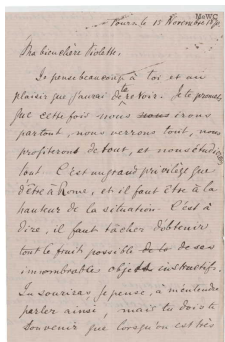 le 13 Novembre
Ma bien chère Violette,
Je pense beaucoup à toi et au
plaisir que j'aurai de te revoir. Je te promets
que cette fois nous nous irons
partout, nous verrons tout, nous
profiterons de tout, et nous étudierons
tout. C'est un grand privilège que
d'être à Rome, et il faut être à la
hauteur de la situation. C'est à
dire, il faut tâcher d'obtenir
tout le fruit possible de la de ses
innombrables objets instructifs.
Tu souriras je pense, à m'entendre
parler ainsi, mais tu dois te
souvenir que lorsqu'on est très